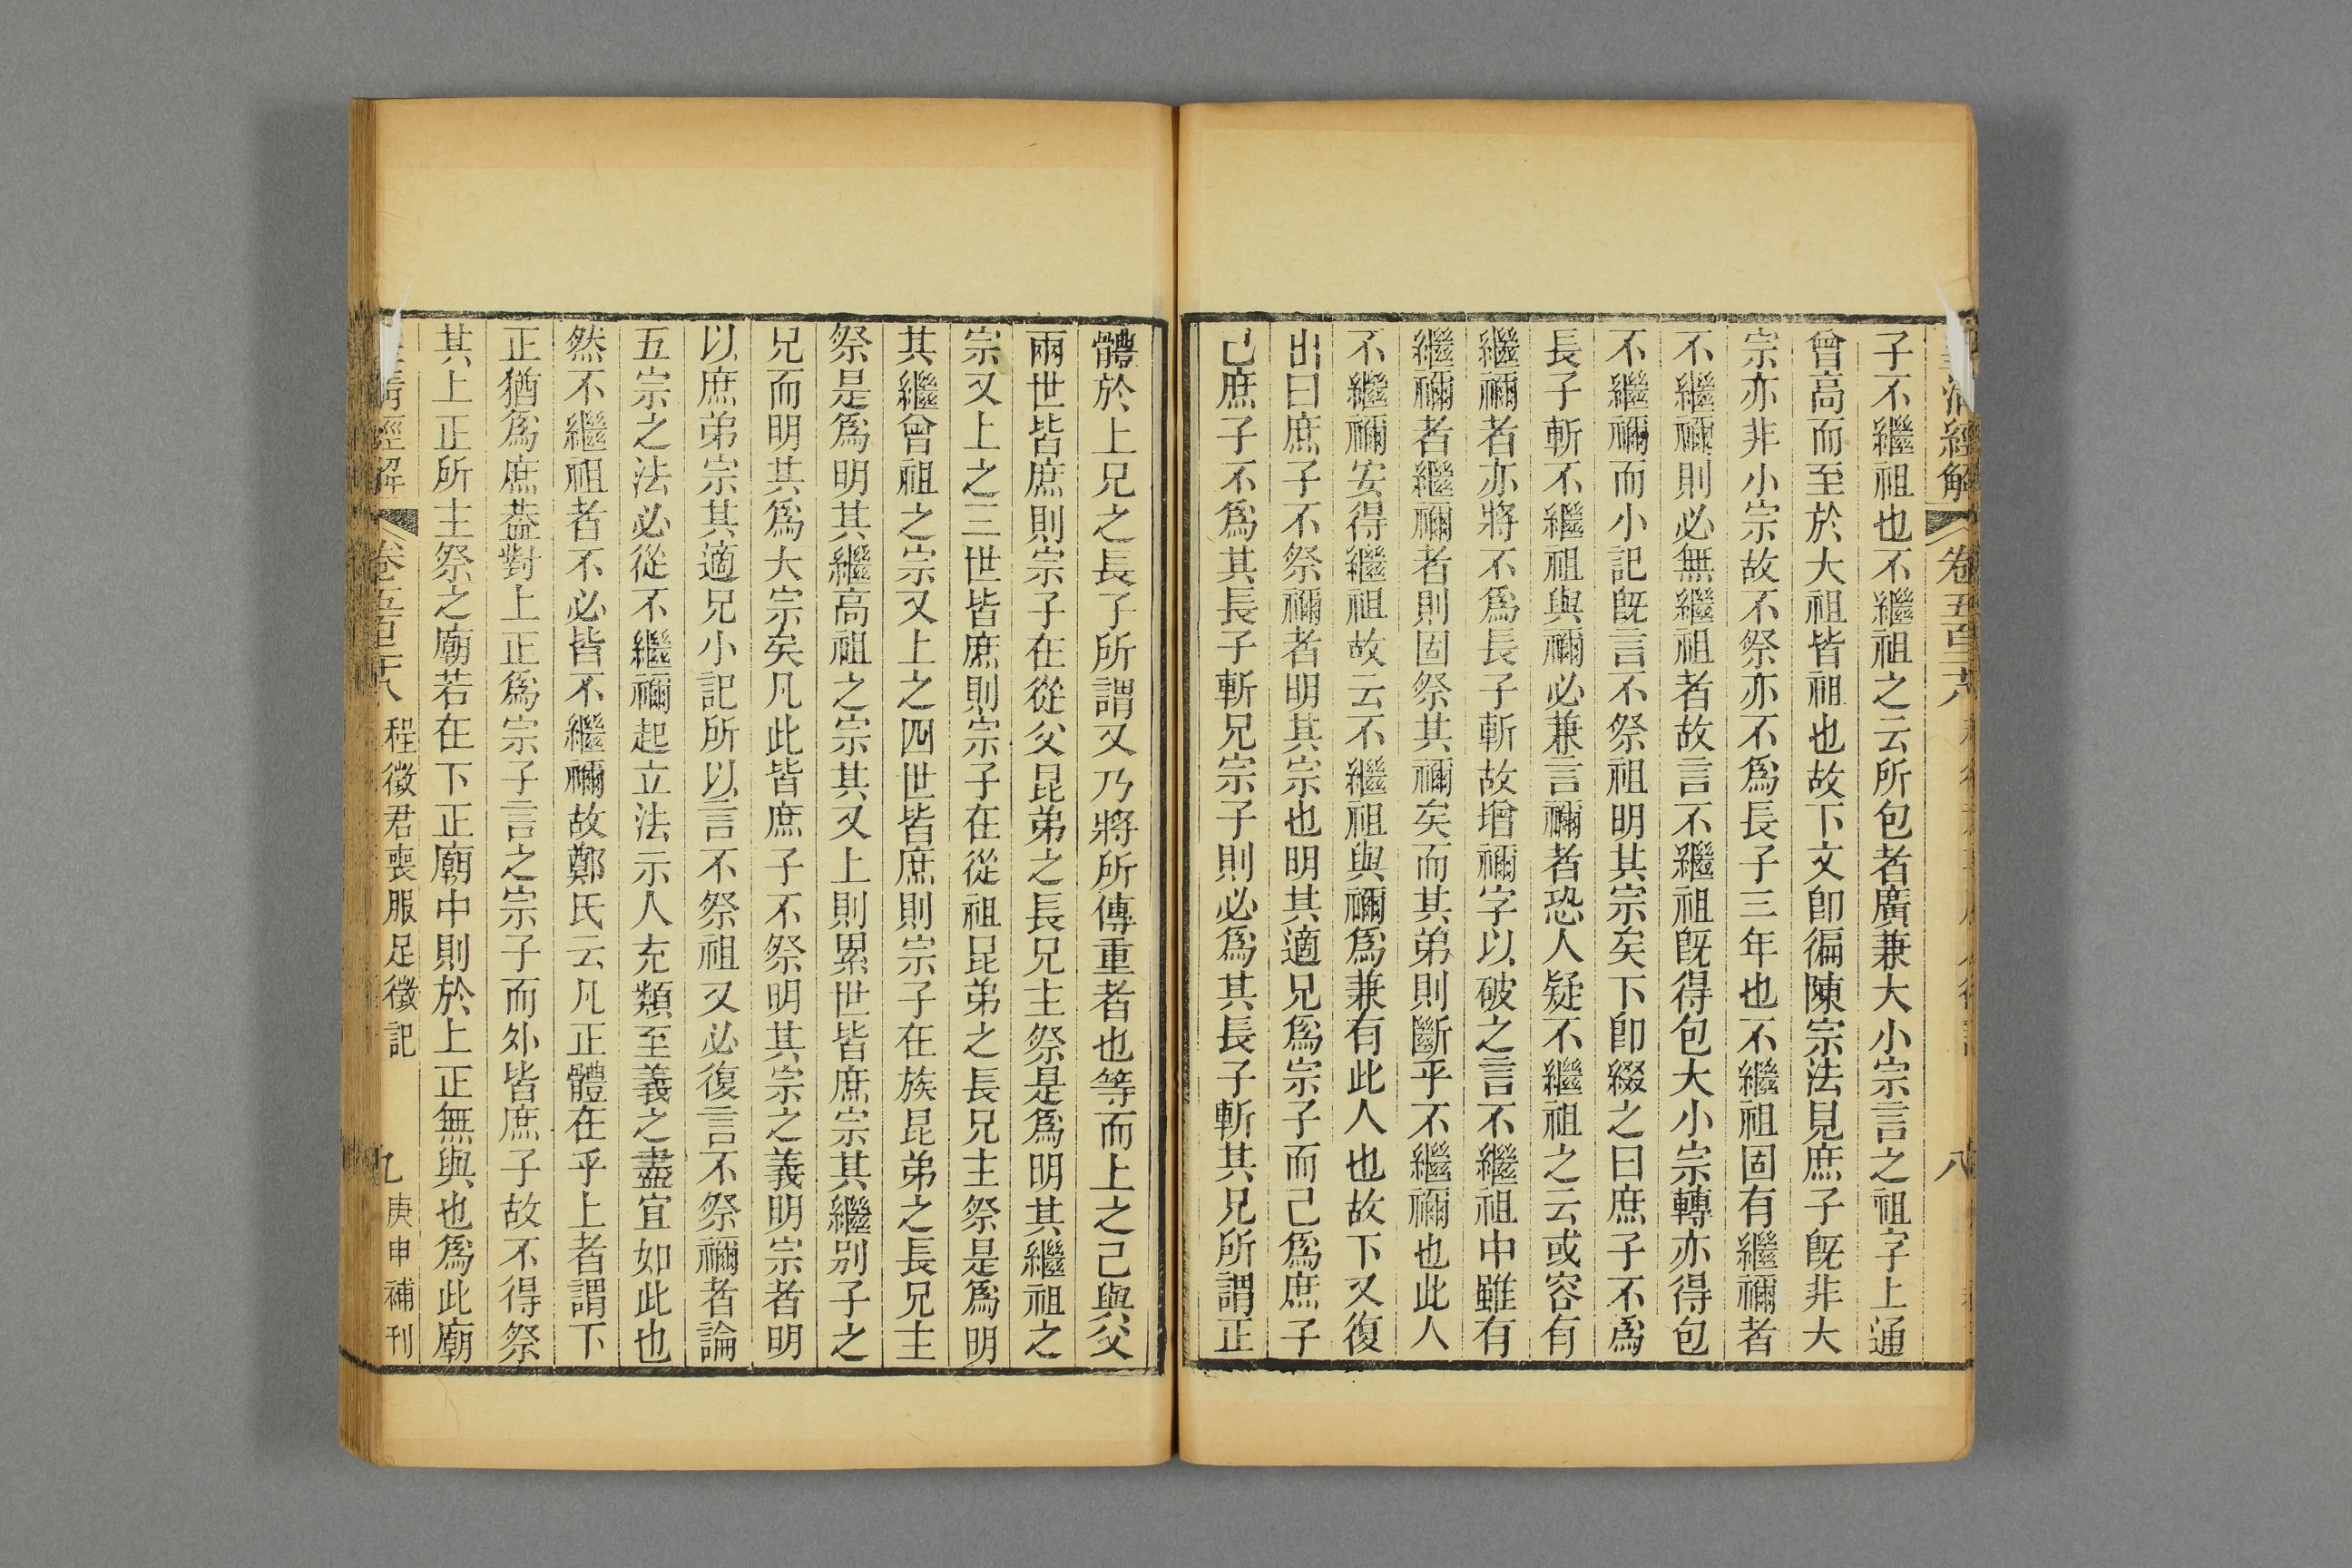 清經解 卷五百二十八 八
子不繼祖也不繼祖之云所包者廣兼大小宗言之祖字上通
曾高而至於大祖皆祖也故下文卽徧陳宗法見庶子旣非大
宗亦非小宗故不祭亦不爲長子三年也不繼祖固有繼禰者
不繼禰則必無繼祖者故言不繼祖旣得包大小宗轉亦得包
不繼禰而小記旣言不祭祖明其宗矣下卽綴之曰庶子不爲
長子斬不繼祖與禰必兼言禰者恐人疑不繼祖之云或容有
繼禰者亦將不爲長子斬故增禰字以破之言不繼祖中雖有
繼禰者繼禰者則固祭其禰矣而其弟則斷乎不繼禰也此人
不繼禰安得繼祖故云不繼祖與禰爲兼有此人也故下又復
出曰庶子不祭禰者明其宗也明其適兄爲宗子而己爲庶子
己庶子不爲其長子斬兄宗子則必爲其長子斬其兄所謂正
體於上兄之長子所謂又乃將所傳重者也等而上之己與父
兩世皆庶則宗子在從父昆弟之長兄主祭是爲明其繼祖之
宗又上之三世皆庶則宗子在從祖昆弟之長兄主祭是爲明
其繼曾祖之宗又上之四世皆庶則宗子在族昆弟之長兄主
祭是爲明其繼高祖之宗其又上則累世皆庶宗其繼別子之
兄而明其爲大宗矣凡此皆庶子不祭明其宗之義明宗者明
以庶弟宗其適兄小記所以言不祭祖又必復言不祭禰者論
五宗之法必從不繼禰起立法示人充類至義之盡宜如此也
然不繼祖者不必皆不繼禰故鄭氏云凡正體在乎上者謂下
正猶爲庶葢對上正爲宗子言之宗子而外皆庶子故不得祭
其上正所主祭之廟若在下正廟中則於上正無與也爲此廟
淸經解 卷五百二十八 程徵君喪服足徵記 九 庚申補刊